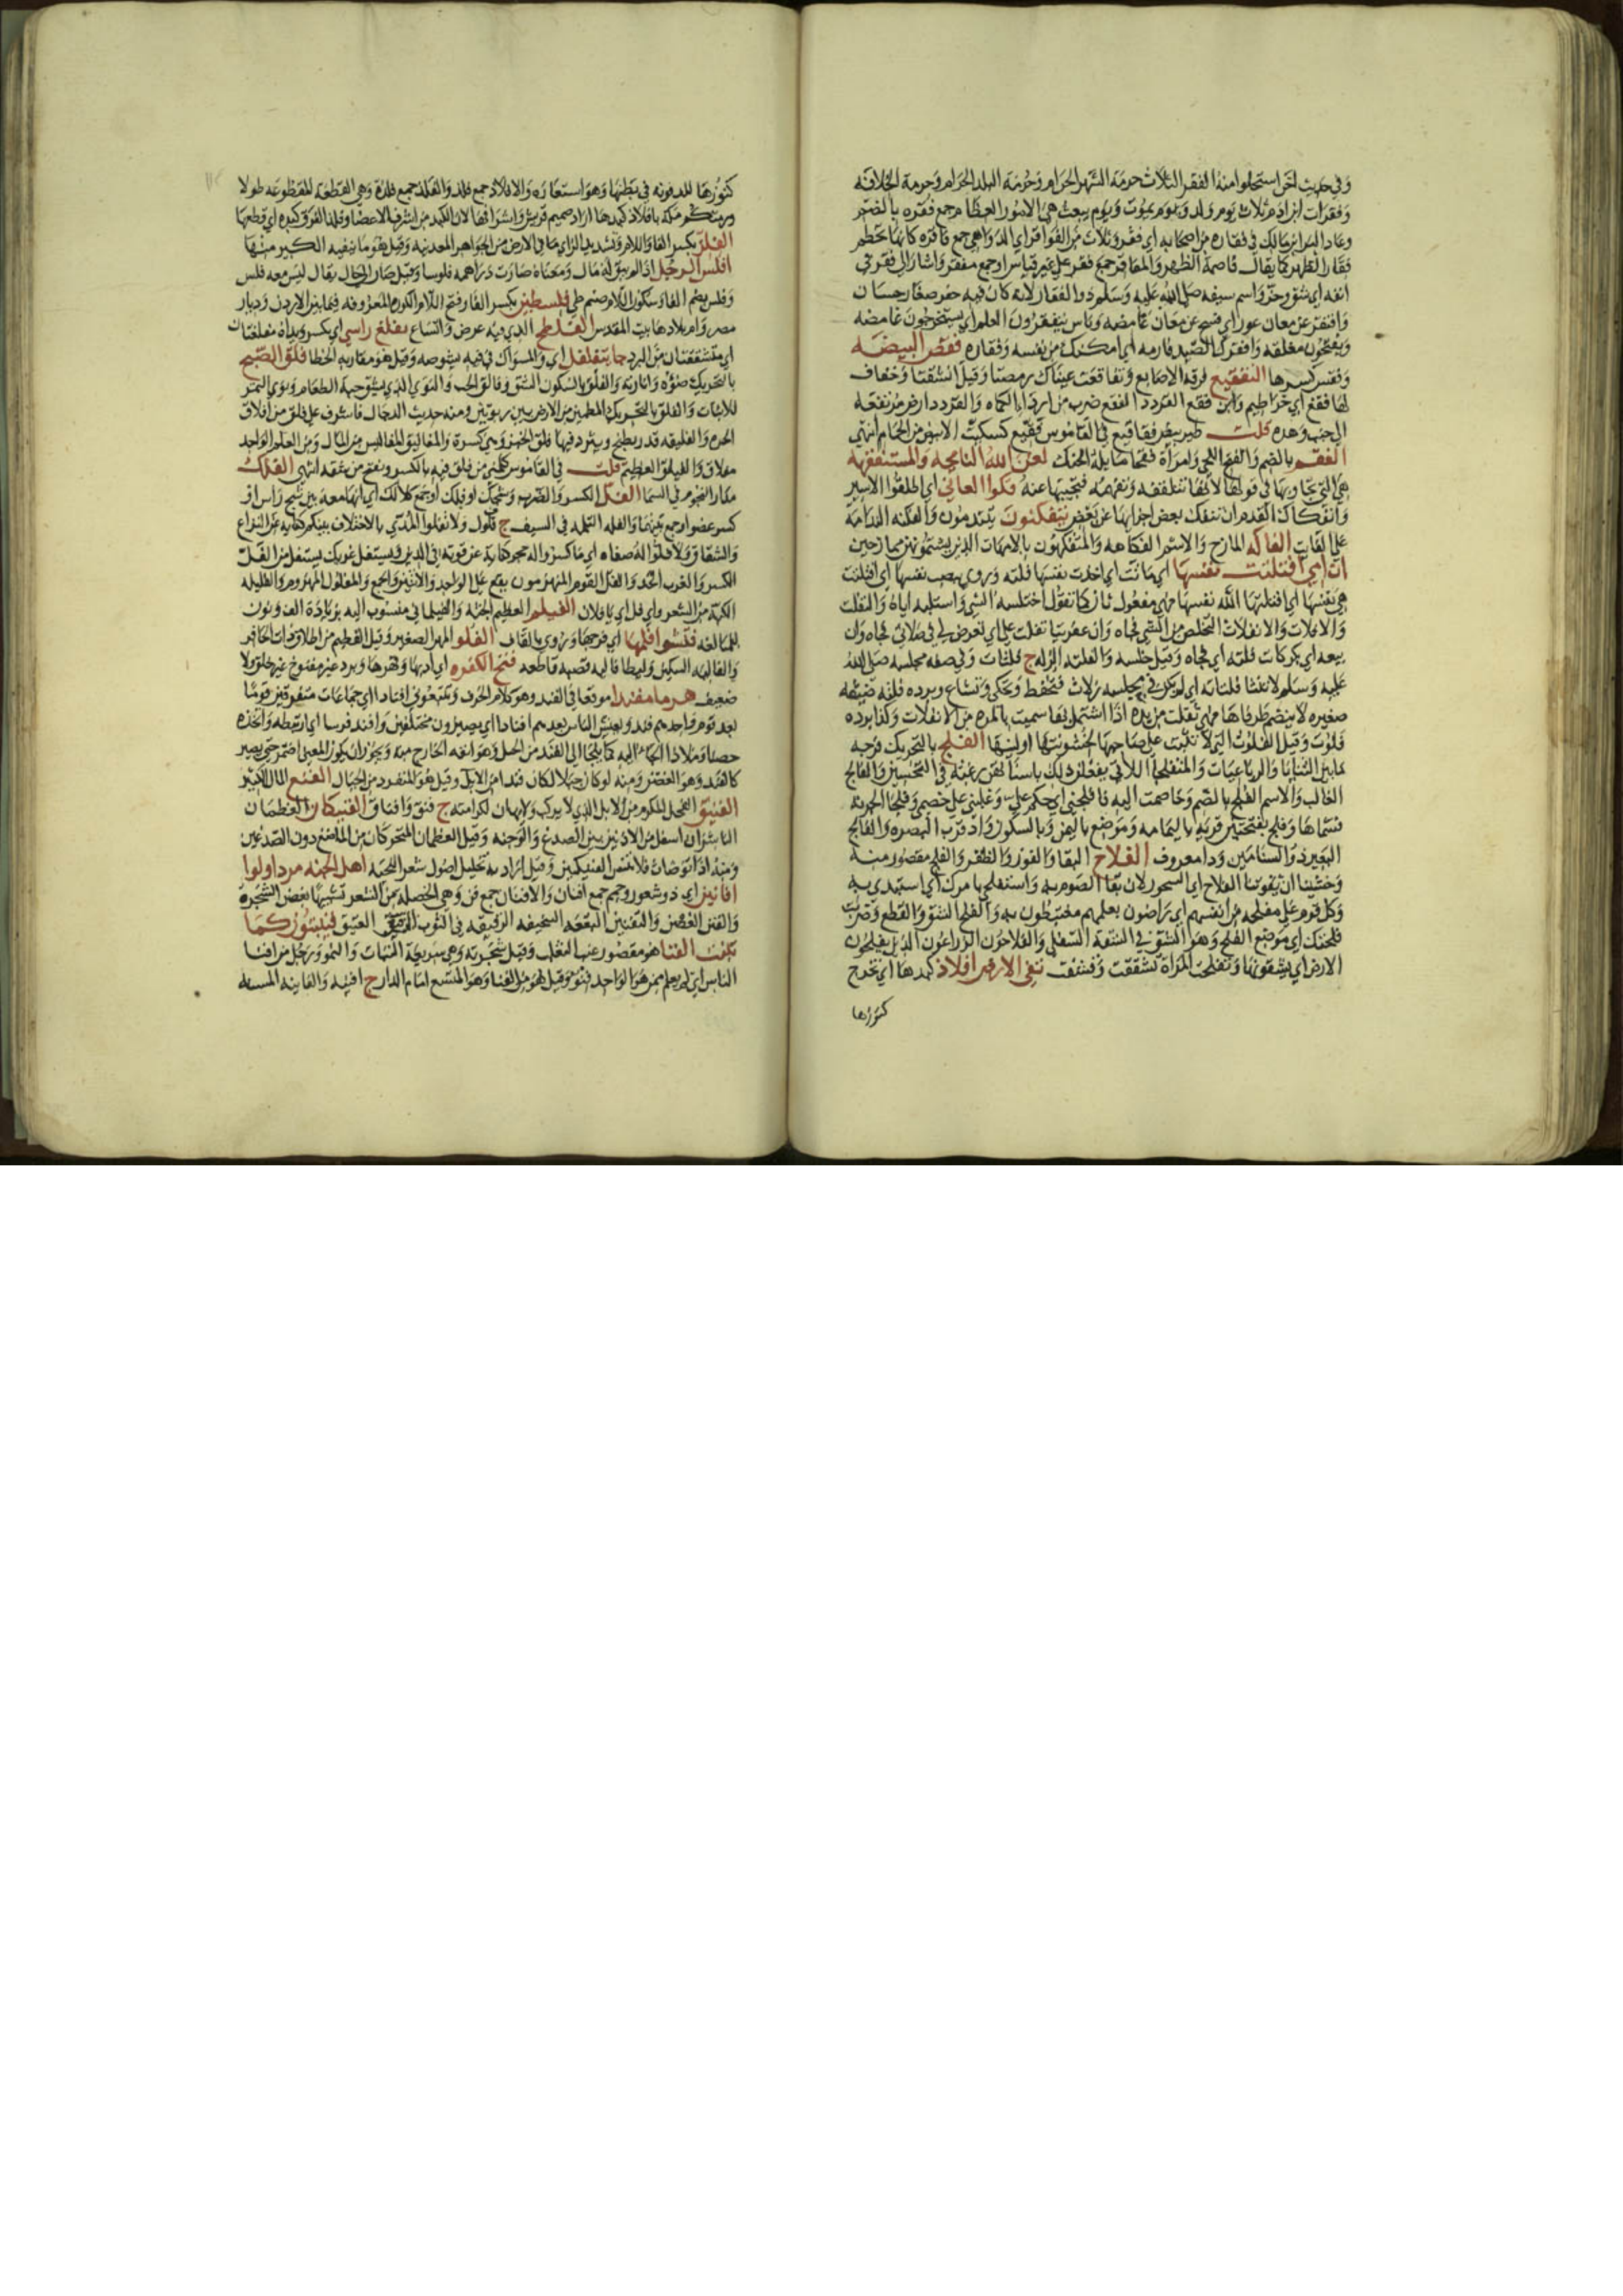 وفي حديث اخر استحلوا منه الفقر الثلاث حرمة الشهر الحرام وحرمة البلد الحرام وحرمة الخلافة
وفقرات ابن ادم ثلاث يوم ولد ويوم يموت ويوم يبعث هي الامور العظام جمع فقره بالضم
وعاد البراء بن مالك في فقاره من اصحابه اي فقر وثلاث من الفواقر اي الدواهي جمع فاقره كانها تحطم
فقار الظهر كما يقال قاصمة الظهر والمفاقر جمع فقر على غير قياس او جمع مفقر واشار الى فقر في
انفه اي شق وحز واسم سيفه صلى الله عليه وسلم ذوا الفقار لانه كان فيه حفر صغار حسان
وافتقر عن معان عور اي فتح عن معان غامضه وناس يتفقرون العلم اي يستخرجون غامضه
ويفتحون مغلقه وافقرك الصيد فارمه اي امكنك من نفسه وفقاره فقص البيضه
وفقس كسرها التفقيع فرقعة الاصابع وتفاقعت عيناك رمصتا وقيل انشقتا وخفاف
لها فقع اي خراطيم وابن فقع القردد الفقع ضرب من اردا الكماه والقردد ارض مرتفعه
الى جنب وهده قلت طير بيض فقاقيع في القاموس فقيع كسكيت الابيض من الحمام انتهى
الفقم بالضم والفتح اللحى وامراة فقما مايلة الحنك لعن الله النايحه والمستفقهه
هي التي تجاوبها في قولها لانها تتلقفه وتفهمه فتجيبها عنه فكوا العاني اي اطلقوا الاسير
وانفكاك القدم ان تنفك بعض اجزائها عن بعض يتفكنون يتندمون والفكنه الندامه
على الفايت الفاكه المازح والاسم الفكاهه والمتفكهون بالامهات الذين يشتمونهن مازحين
ان امي افتلتت نفسها اي ماتت اي اخذت نفسها فلته وروي بنصب نفسها اي افتلتت
هي نفسها اي افتلتها الله نفسها فهي مفعول ثان كما تقول اختلسه الشي واستلبه اياه والتفلت
والافلات والانفلات التخلص من الشي فجاه وان عفريتا تفلت علي اي تعرض لي في صلاتي فجاه وان
بيعه ابي بكر كانت فلته اي فجاه وقيل خلسه والفلته الزله ج فلتات وفي صفه مجلسه صلى الله
عليه وسلم لا تنثا فلتاته اي لم يكن في مجلسه زلات فتحفظ وتحكى وتشاع وبرده فلته ضيقه
صغيره لا ينضم طرفاها فهي تفلت من يده اذا اشتمل بها سميت بالمره من الانفلات وكذا برده
فلوت وقيل الفلوت التي لا تثبت على صاحبها لخشونتها او لينها الفلج بالتحريك فرجه
ما بين الثنايا والرباعيات والمتفلجات اللاتي يفعلن ذلك باسنانهن رغبه في التحسين والفالج
الغالب والاسم الفلج بالضم وخاصمت اليه فافلجني اي حكم علي وغلبني على خصمي وفلجا الجزيه
قسماها وفلج بفتحتين قريه باليمامه وموضع باليمن وبالسكون واد قرب البصره والفالج
البعير ذو السنامين وداء معروف الفلاح البقا والفوز والظفر والفلح مقصور منه
وخشينا ان يفوتنا الفلاح اي السحور لان بقا الصوم به واستفلحي بامرك اي استبدي به
وكل قوم على مفلحه من انفسهم اي راضون بعلمهم مغتبطون به والفلح الشق والقطع وضربت
فلحتك اي موضع الفلح وهو الشق في الشفة السفلى والفلاحون الزراعون الذين يفلحون
الارض اي يشقونها وتفلحت المراة تشققت وتشعثت تقي الارض افلاذ كبدها اي تخرج
كنوزها
كنوزها المدفونه في بطنها وهو استعاره والافلاذ جمع فلذ والفلذ جمع فلذة وهي القطعه المقطوعه طولا
ورمتكم مكة بافلاذ كبدها اراد صميم قريش واشرافها لان الكبد من اشرف الاعضا
الفلز بكسر الفا واللام وتشديد الزاي ما في الارض من الجواهر المعدنيه وقيل هو ما ينفيه الكير منها
افلس الرجل اذا لم يبق له مال ومعناه صارت دراهمه فلوسا وقيل صار الى حال يقال ليس معه فلس
وفلس بضم الفا وسكون اللام صنم طي فلسطين بكسر الفا وفتح اللام الكور المعروفه فيما بين الاردن وديار
مصر وام بلادها بيت المقدس الفلطح الذي فيه عرض واتساع يفلغ راسي اي يكسر ويداه مفلغتان
اي متشققتان من البرد جا يتفلفل اي والسواك في فيه يشوصه وقيل هو مقاربه الخطا فلق الصبح
بالتحريك ضوؤه وانارته والفلق بالسكون الشق وفالق الحب والنوى الذي يشق حبة الطعام ونوى التمر
للانبات والفلق بالتحريك المطمين من الارض بين ربوتين ومنه حديث الدجال فاشرف على فلق من افلاق
الحره والفليقه قدر يطبخ ويثرد فيها فلق الخبز وهي كسره والمفاليق المفاليس من المال ومن العلم الواحد
مفلاق والفيلق العظيم قلت في القاموس كلمني من فلق فيه بالكسر ويفتح من شقه انتهى الفلك
مدار النجوم في السما الفل الكسر والضرب وشجك او فلك او جمع كلا لك اي انها معه بين شج راس او
كسر عضو او جمع بينهما والفله الثلمه في السيف ج فلول ولا تفلوا المدى بالاختلاف بينكم كنايه عن النزاع
والشقاق ولا فلوا له صفاه اي ما كسروا له حجر كنايه عن قوته في الدين ويستفل غربك يستفعل من الفل
الكسر والغرب الحد والفل القوم المنهزمون يقع على الواحد والاثنين والجمع والمفلول المهزوم والفليله
الكبة من الشعر واي فل اي يا فلان الفيلم العظيم الجثه والفيلماني منسوب اليه بزيادة الف ونون
للمبالغه فتشوا فلهمها اي فرجها ويروى بالقاف الفلو المهر الصغير وقيل الفطيم من اولاد ذات الحافر
والفاليه السكين
ضعيف هرما مفندا موقعا في الفند وهو كلام الخرف وتتبعوني افنادا اي جماعات متفرقين قوما
بعد قوم واحدهم فند ويعيش الناس بعدهم افنادا اي يصيرون مختلفين وافند فرسا اي ارتبطه واتخذه
حصنا وملاذا الجا اليه كما يلجا الى الفند من الجبل وهو انفه الخارج منه ويجوز ان يكون المعنى اضمر حتى يصير
كالفند وهو الغصن ومنه لو كان جبلا لكان فندا وقيل هو المنفرد من الجبال الفنع المال الكثير
الفنيق الفحل المكرم من الابل الذي لا يركب ولا يهان لكرامته ج فنق وافناق الفنيكان العظمان
الناشزان اسفل من الاذنين بين الصدغ والوجنه وقيل العظمان المتحركان من الماضغ دون الصدغين
ومنه اذا توضات فلا تنس الفنيكين وقيل اراد به تخليل اصول شعر اللحيه اهل الجنه مرد اولوا
افانين اي ذو شعور وجمم جمع افنان والافنان جمع فنن وهي الخصله من الشعر تشبيها بغصن الشجرة
والفنن الغصن والتفنين البقعه السخيفه الرقيقه في الثوب الصفيق فينبتون كما
ينبت الفنا هو مقصور عنب الثعلب وقيل شجرته وهي سريعة النبات والنمو ورجل من افنا
الناس اي لم يعلم ممن هو الواحد فنو وقيل هو من الفنا وهو المتسع امام الدار ج افنيه والفانيه المسنه